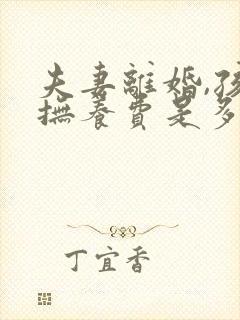 夫妻離婚,孩
撫養費是多
丁宜香